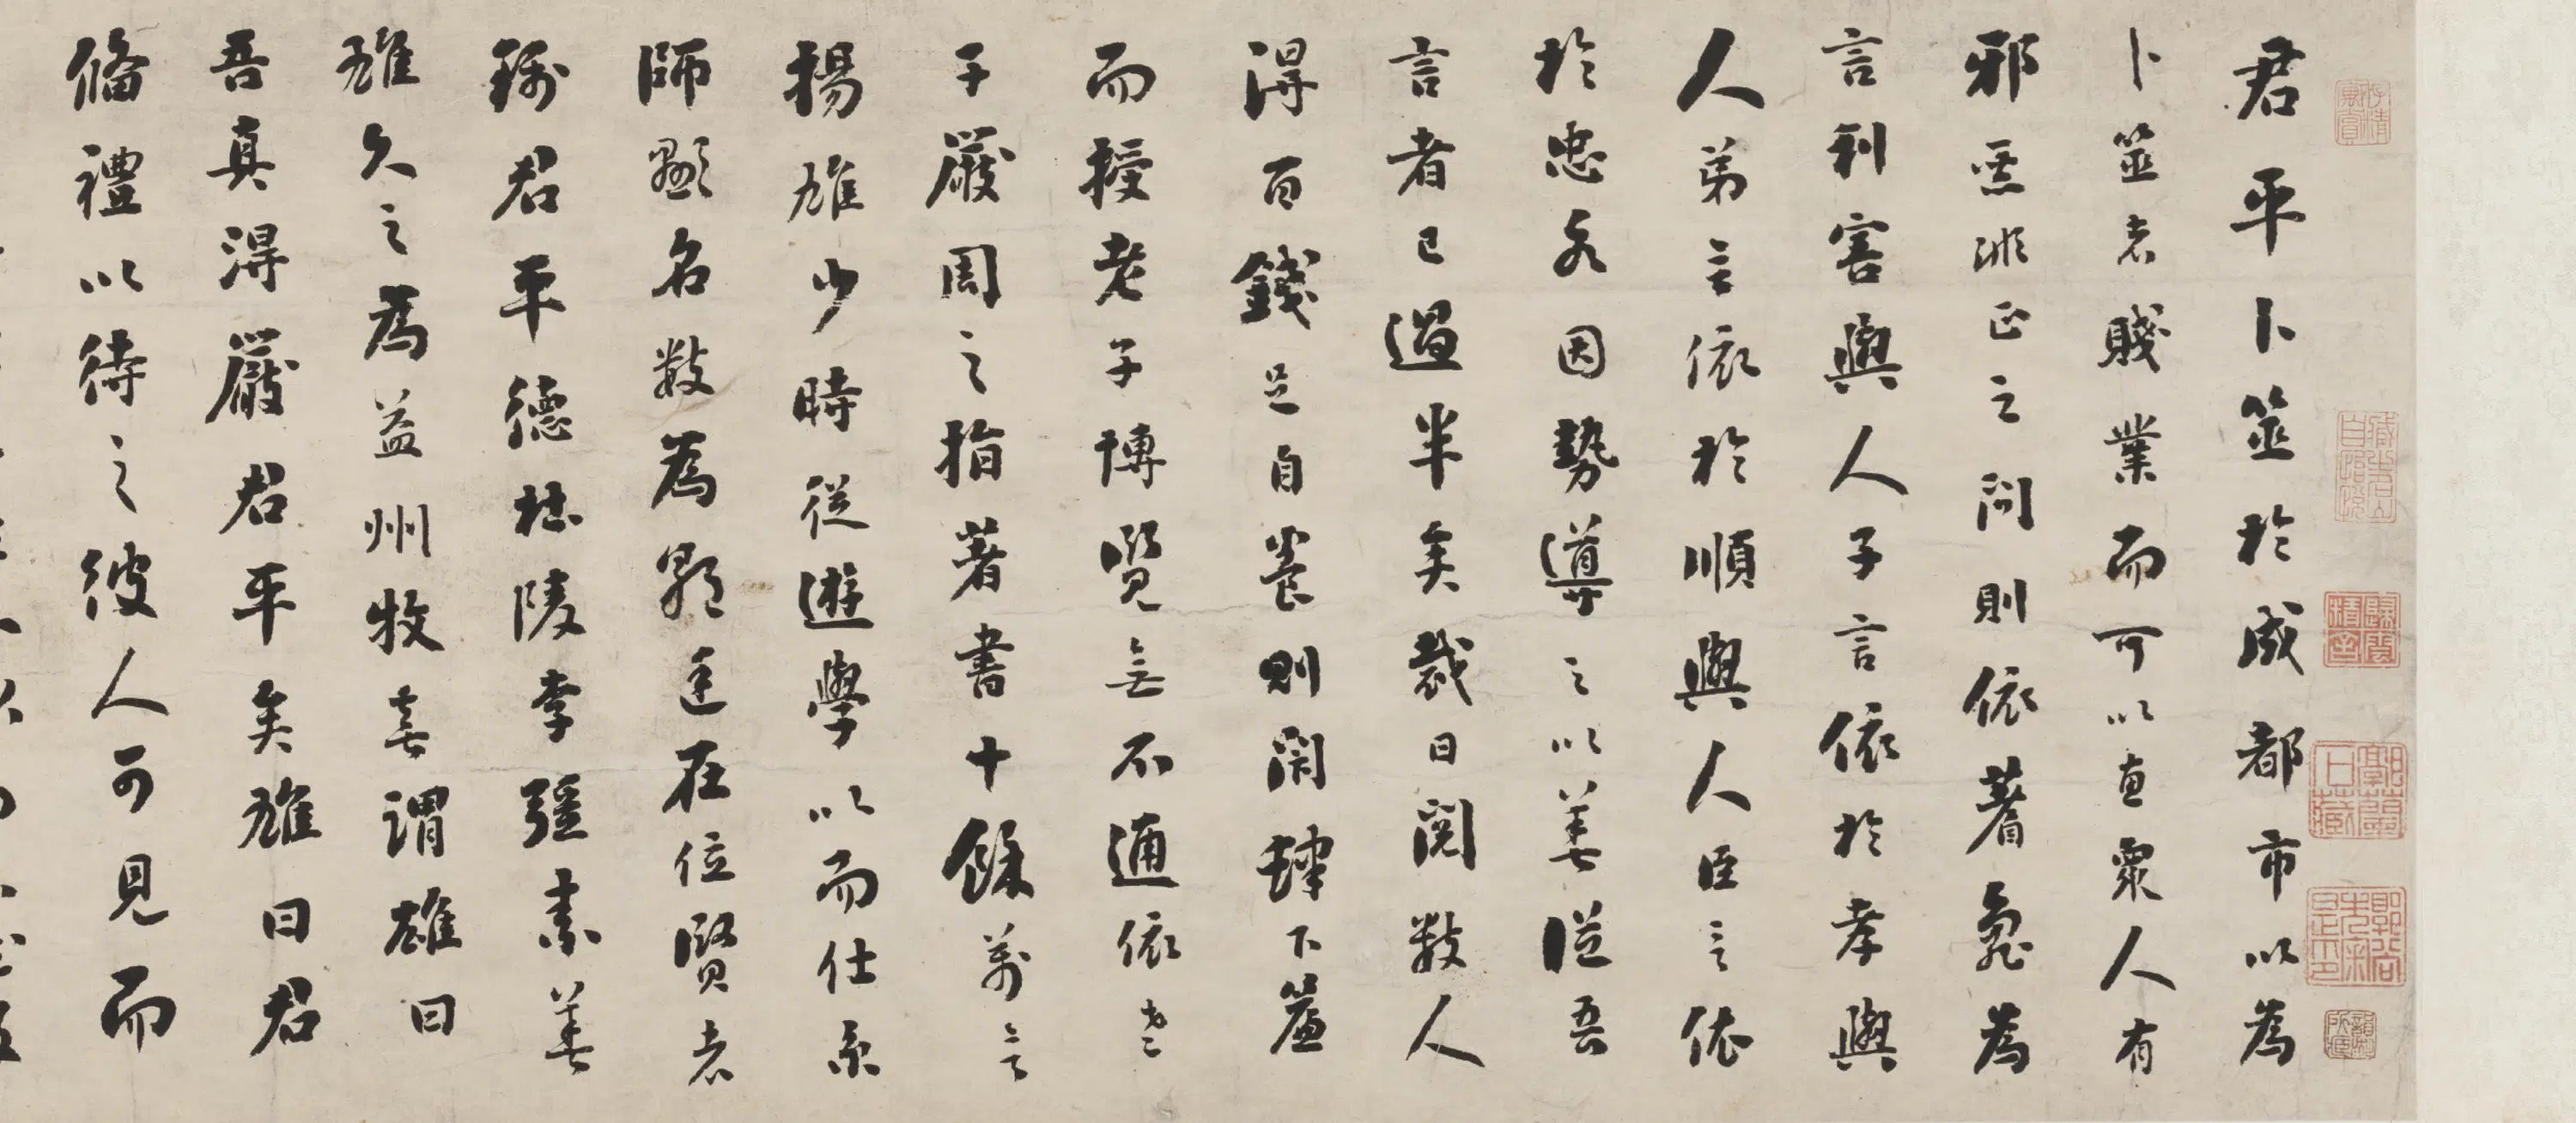 君平卜筮於成都市以為
卜筮者賤業而可以惠衆人有
邪惡非正之問則依蓍龜為
言利害與人子言依於孝與
人弟言依於順與人臣言依
於忠各因勢導之以善從吾
言者已過半矣裁日閱數人
得百錢足自養則閉肆下簾
而授老子博覽無不通依老
子嚴周之指著書十餘萬言
揚雄少時從遊學以而仕京
師顯名數為朝廷在位賢者
稱君平德杜陵李彊素善
雄久之為益州牧喜謂雄曰
吾真得嚴君平矣雄曰君
備禮以待之彼人可見而